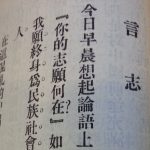 言志
今日早晨想起論語上
『你的志願何在？』如
我願終身為民族社會
人